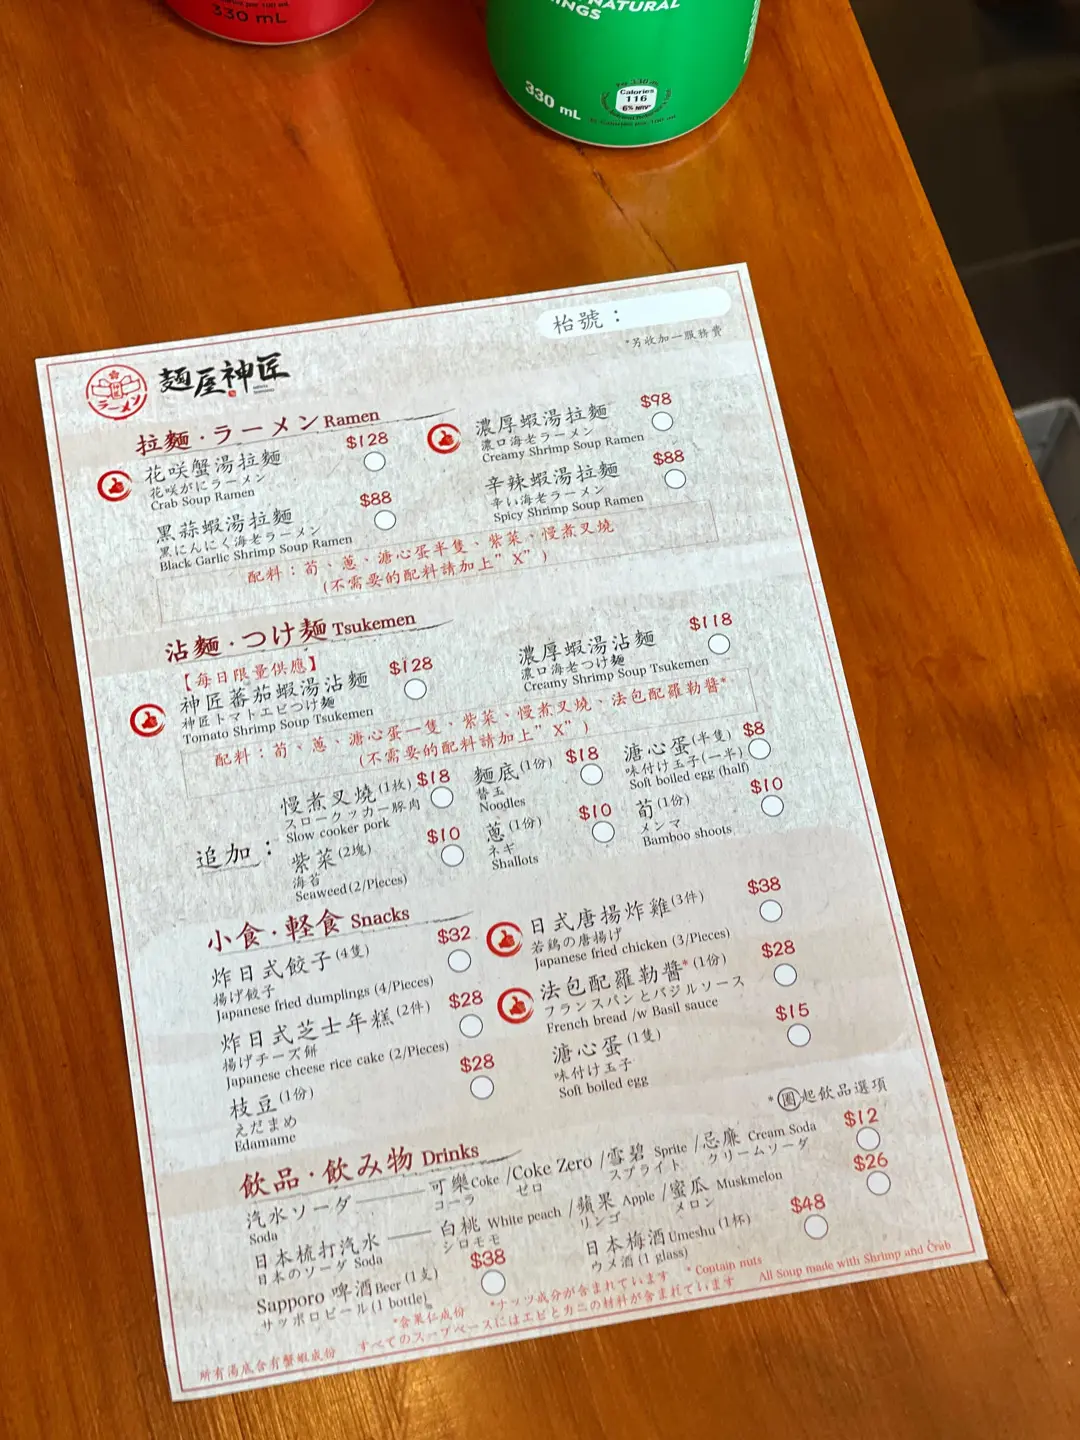 330 mL
NATURAL
INGS
330 mL
Calories
116
6% NRV*
枱號：
*另收加一服務費
ラーメン
麵屋神匠
拉麵・ラーメン Ramen
花咲蟹湯拉麵 $128
花咲がにラーメン
Crab Soup Ramen
濃厚蝦湯拉麵 $98
濃口海老ラーメン
Creamy Shrimp Soup Ramen
黑蒜蝦湯拉麵 $88
黒にんにく海老ラーメン
Black Garlic Shrimp Soup Ramen
辛辣蝦湯拉麵 $88
辛い海老ラーメン
Spicy Shrimp Soup Ramen
配料：荀、蔥、溏心蛋半隻、紫菜、慢煮叉燒
(不需要的配料請加上”X”)
沾麵・つけ麵 Tsukemen
【每日限量供應】
神匠蕃茄蝦湯沾麵 $128
神匠トマトエビつけ麵
Tomato Shrimp Soup Tsukemen
濃厚蝦湯沾麵 $118
濃口海老つけ麵
Creamy Shrimp Soup Tsukemen
配料：荀、蔥、溏心蛋一隻、紫菜、慢煮叉燒、法包配羅勒醬*
(不需要的配料請加上”X”)
追加：
慢煮叉燒(1枚) $18
スロークッカー豚肉
Slow cooker pork
麵底(1份) $18
替玉
Noodles
溏心蛋(半隻) $8
味付け玉子(一半)
Soft boiled egg (half)
紫菜(2塊) $10
海苔
Seaweed(2/Pieces)
蔥(1份) $10
ネギ
Shallots
荀(1份) $10
メンマ
Bamboo shoots
小食・軽食 Snacks
炸日式餃子(4隻) $32
揚げ餃子
Japanese fried dumplings (4/Pieces)
日式唐揚炸雞(3件) $38
若鶏の唐揚げ
Japanese fried chicken (3/Pieces)
炸日式芝士年糕(2件) $28
揚げチーズ餅
Japanese cheese rice cake (2/Pieces)
法包配羅勒醬*(1份) $28
フランスパンとバジルソース
French bread /w Basil sauce
枝豆(1份) $28
えだまめ
Edamame
溏心蛋(1隻) $15
味付け玉子
Soft boiled egg
*圈起飲品選項
飲品・飲み物 Drinks
汽水ソーダ 可樂Coke /Coke Zero /雪碧 Sprite /忌廉 Cream Soda $12
Soda コーラ ゼロ スプライト クリームソーダ
日本梳打汽水 白桃 White peach /蘋果 Apple /蜜瓜 Muskmelon $26
日本のソーダ Soda シロモモ リンゴ メロン
Sapporo 啤酒Beer (1支) $38
サッポロビール(1 bottle)
日本梅酒Umeshu (1杯) $48
ウメ酒 (1 glass)
*含果仁成份 *ナッツ成分が含まれています * Contain nuts
所有湯底含有蟹蝦成份 すべてのスープベースにはエビとカニの材料が含まれています All Soup made with Shrimp and Crab